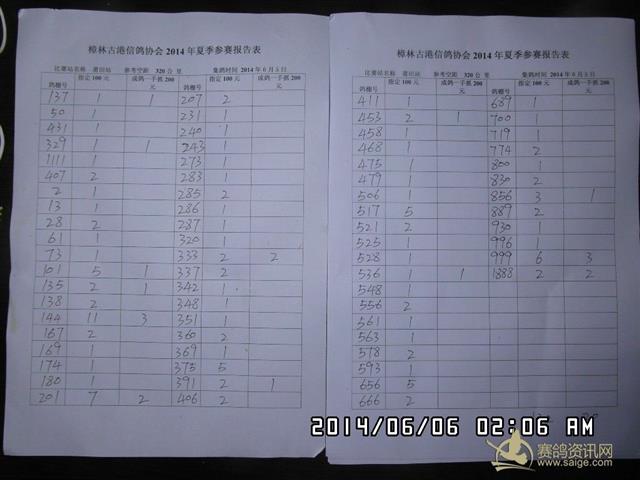 樟林古港信鸽协会 2014 年夏季参赛报告表
比赛站名称 莆田站 参考空距 320 公里 集鸽时间 2014 年 6 月 5 日
鸽棚号 指定 100 元 成鸽一手抓 200 元 鸽棚号 指定 100 元 成鸽一手抓 200 元
137 1 1 207 2
50 1 231 1
431 1 240 1
329 1 1 243 1
1111 1 273 1
407 2 283 1
2 1 285 2
13 1 286 1
28 2 287 1
61 1 320 1
73 1 333 2 2
101 5 1 337 2
135 2 1 342 1
138 2 348 1
144 11 3 351 1
167 2 360 2
169 1 369 1
174 1 375 5
180 1 391 2 1
201 7 2 406 2
樟林古港信鸽协会 2014 年夏季参赛报告表
比赛站名称 莆田站 参考空距 320 公里 集鸽时间 2014 年 6 月 5 日
鸽棚号 指定 100 元 成鸽一手抓 200 元 鸽棚号 指定 100 元 成鸽一手抓 200 元
411 1 689 1
453 2 1 700 1
458 1 719 1
468 1 774 2
475 1 800 1
479 1 830 2
506 1 856 3 1
517 5 889 2
521 2 930 1
525 1 996 1
528 1 999 6 3
536 1 1 1888 2 2
548 1
556 2
561 1
563 1
578 2
593 1
656 5
666 2
2014/06/06 02:06 AM
赛鸽资讯网
www.saige.com